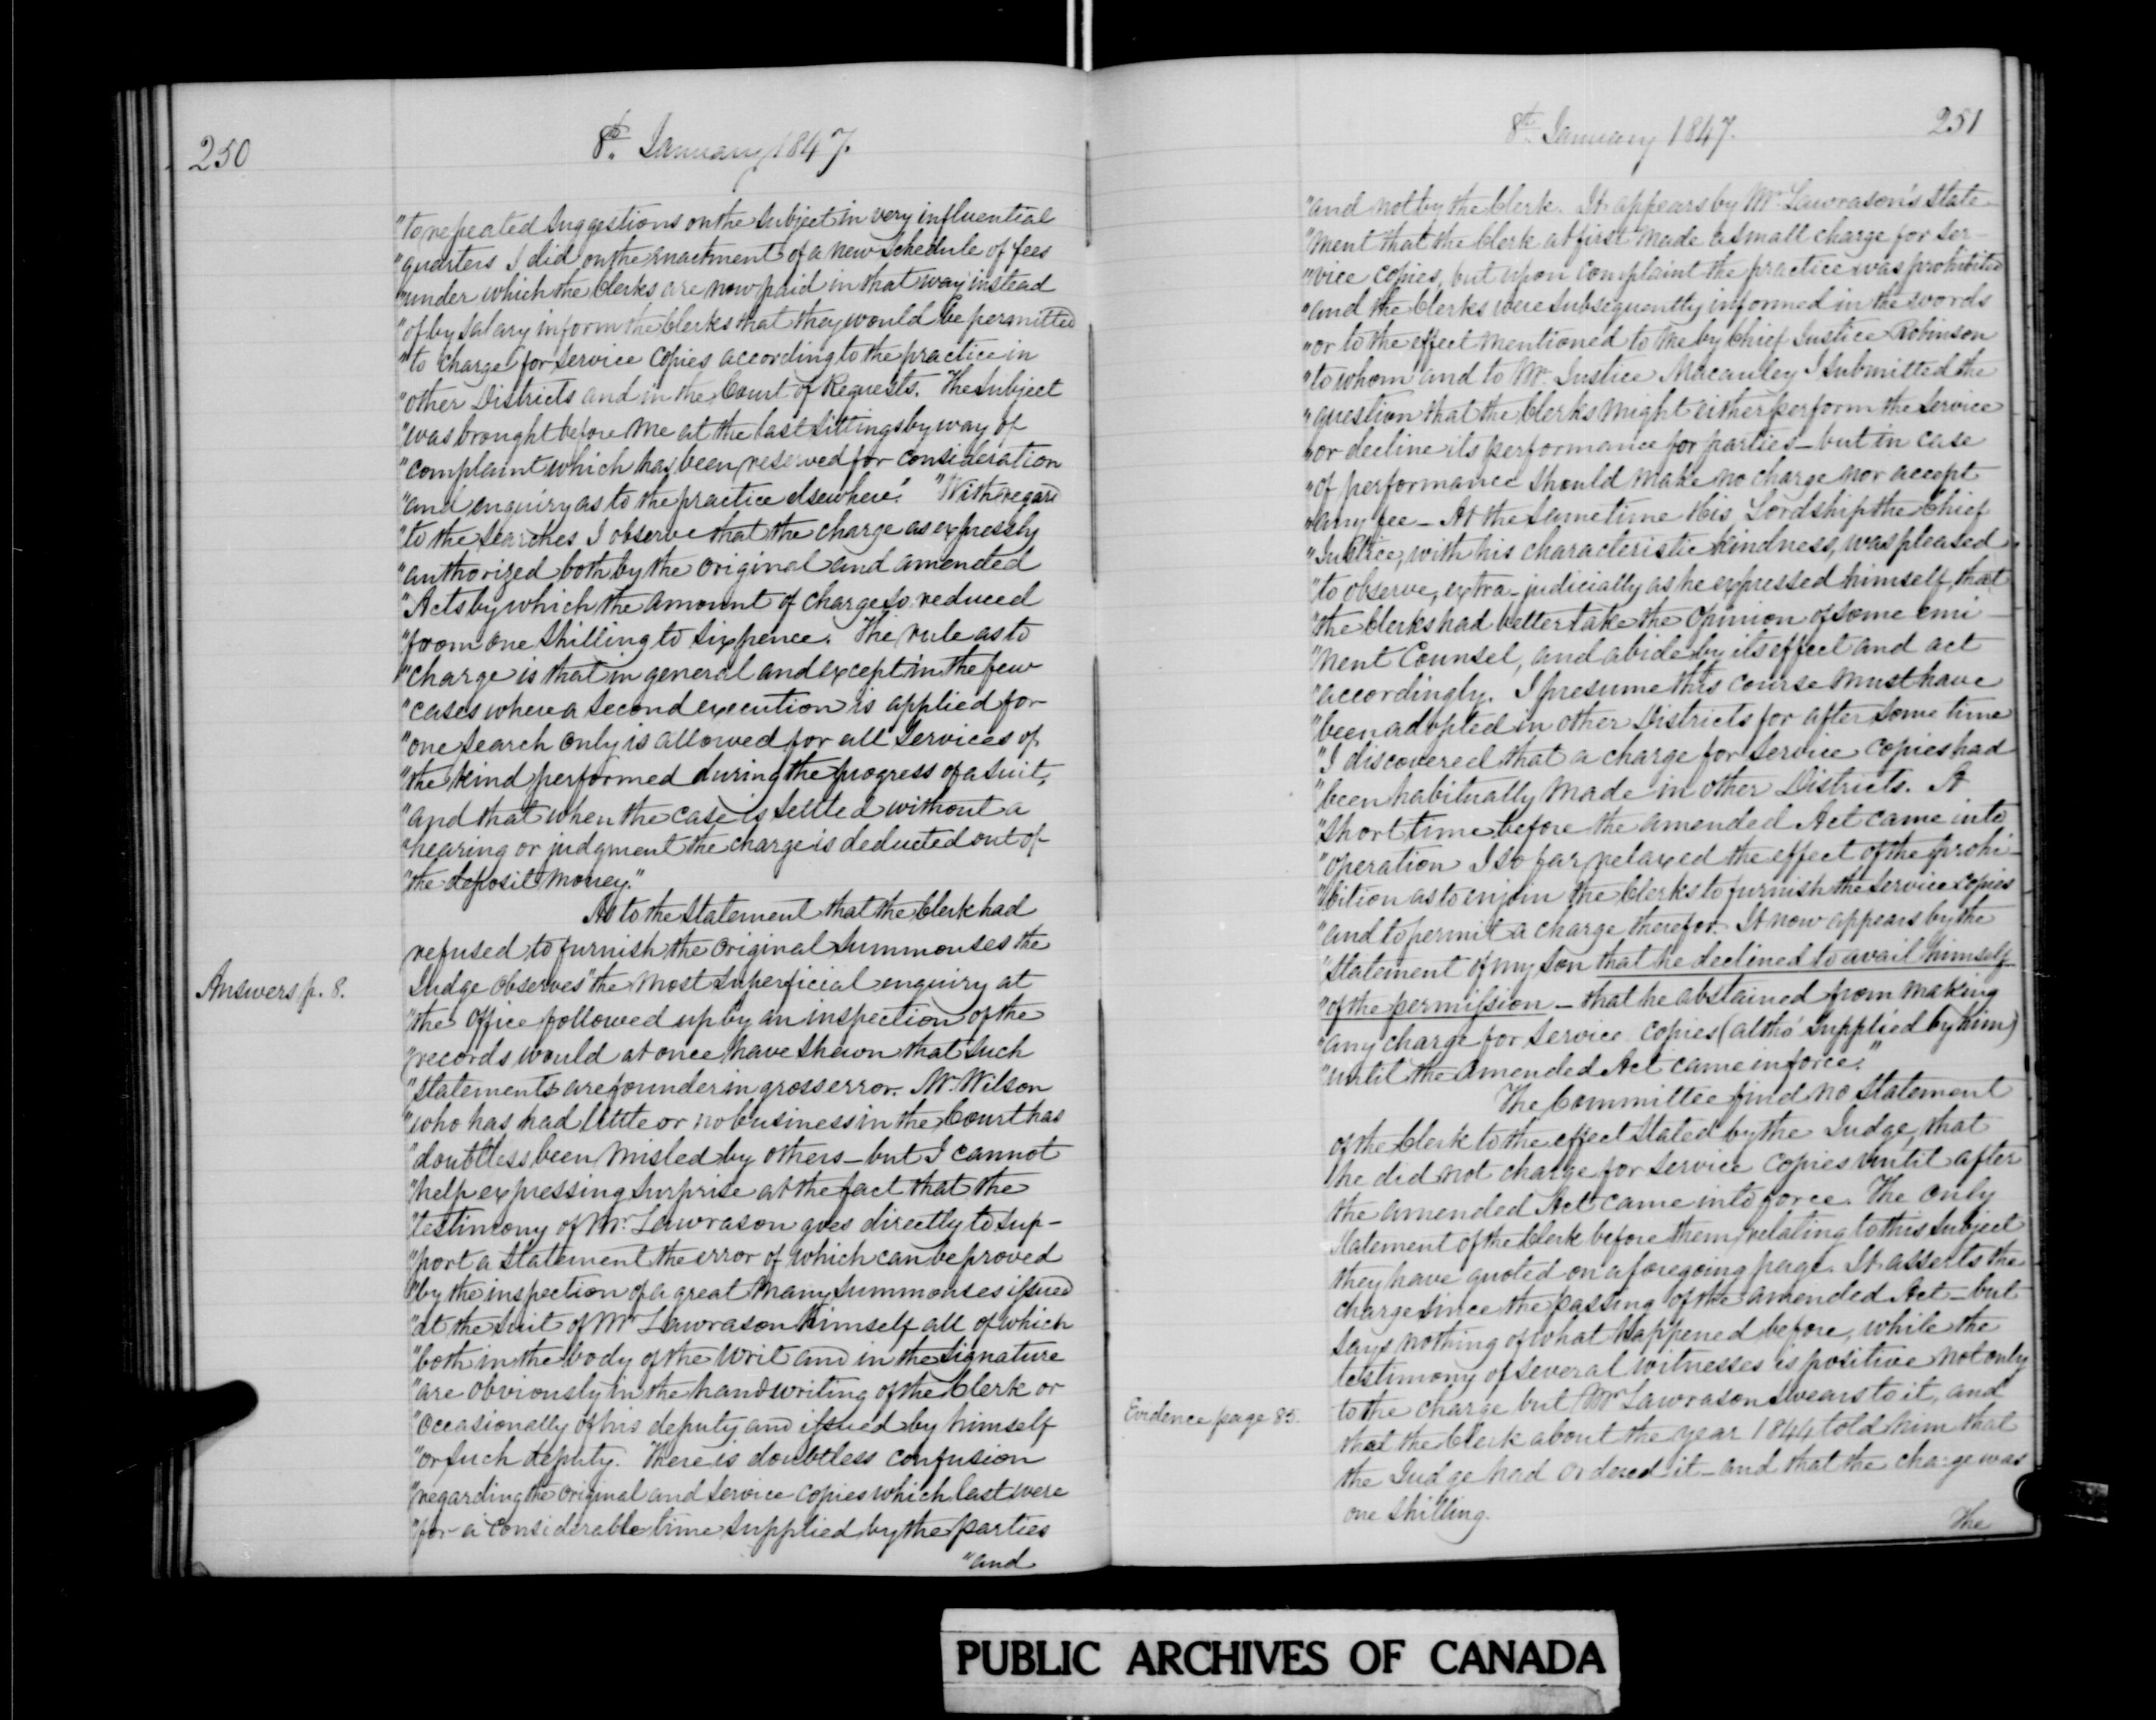 250
8th January 1847.
"to repeated suggestions on the subject in very influential
"quarters I did on the enactment of a new schedule of fees
"under which the Clerks are now paid in that way instead
"of by salary inform the Clerks that they would be permitted
"to charge for service copies according to the practice in
"other Districts and in the Court of Requests. The subject
"was brought before me at the last sittings by way of
"complaint which has been reserved for consideration
"and enquiry as to the practice elsewhere." "With regard
"to the searches I observe that the charge as expressly
"authorized both by the original and amended
"Acts by which the amount of charge so reduced
"from one shilling to sixpence. The rule as to
"charge is that in general and except in the few
"cases where a second execution is applied for
"one search only is allowed for all services of
"the kind performed during the progress of a suit,
"and that when the case is settled without a
"hearing or judgment the charge is deducted out of
"the deposit money."
As to the statement that the Clerk had
refused to furnish the original summonses the
Answers p. 8.
Judge observes "the most superficial enquiry at
"the office followed up by an inspection of the
"records would at once have shewn that such
"statements are founder in gross error. Mr. Wilson
"who has had little or no business in the Court has
"doubtless been misled by others – but I cannot
"help expressing surprise at the fact that the
"testimony of Mr. Lawrason goes directly to sup-
"port a statement the error of which can be proved
"by the inspection of a great many summonses issued
"at the suit of Mr Lawrason himself all of which
"both in the body of the writ and in the signature
"are obviously in the handwriting of the Clerk or
"occasionally of his deputy and issued by himself
"or such deputy. There is doubtless confusion
"regarding the original and service copies which last were
"for a considerable time supplied by the parties
"and
8th January 1847.
251
"and not by the Clerk. It appears by Mr Lawrason's state-
"ment that the Clerk at first made a small charge for ser-
"vice copies, but upon complaint the practice was prohibited
"and the Clerks were subsequently informed in the words
"or to the effect mentioned to me by Chief Justice Robinson
"to whom and to Mr. Justice Macauley I submitted the
"question that the Clerks might either perform the service
"or decline its performance for parties – but in case
"of performance should make no charge nor accept
"any fee – At the same time His Lordship the Chief
"Justice, with his characteristic kindness, was pleased
"to observe, extra-judicially as he expressed himself, that
"the Clerks had better take the opinion of some emi-
"nent Counsel, and abide by its effect and act
"accordingly. I presume this course must have
"been adopted in other Districts for after some time
"I discovered that a charge for service copies had
"been habitually made in other Districts. A
"short time before the amended Act came into
"operation I so far relaxed the effect of the prohi-
"bition as to enjoin the Clerks to furnish the service copies
"and to permit a charge therefor. It now appears by the
"statement of my son that he declined to avail himself
"of the permission – that he abstained from making
"any charge for service copies (altho' supplied by him)
"until the amended Act came in force."
The Committee find no statement
of the Clerk to the effect stated by the Judge, that
he did not charge for service copies until after
the amended Act came into force. The only
statement of the Clerk before them relating to this subject
they have quoted on a foregoing page. It asserts the
charge since the passing of the amended Act – but
says nothing of what happened before, while the
testimony of several witnesses is positive not only
Evidence page 85.
to the charge but Mr Lawrason swears to it, and
that the Clerk about the year 1844 told him that
the Judge had ordered it – and that the charge was
one shilling.
The
PUBLIC ARCHIVES OF CANADA